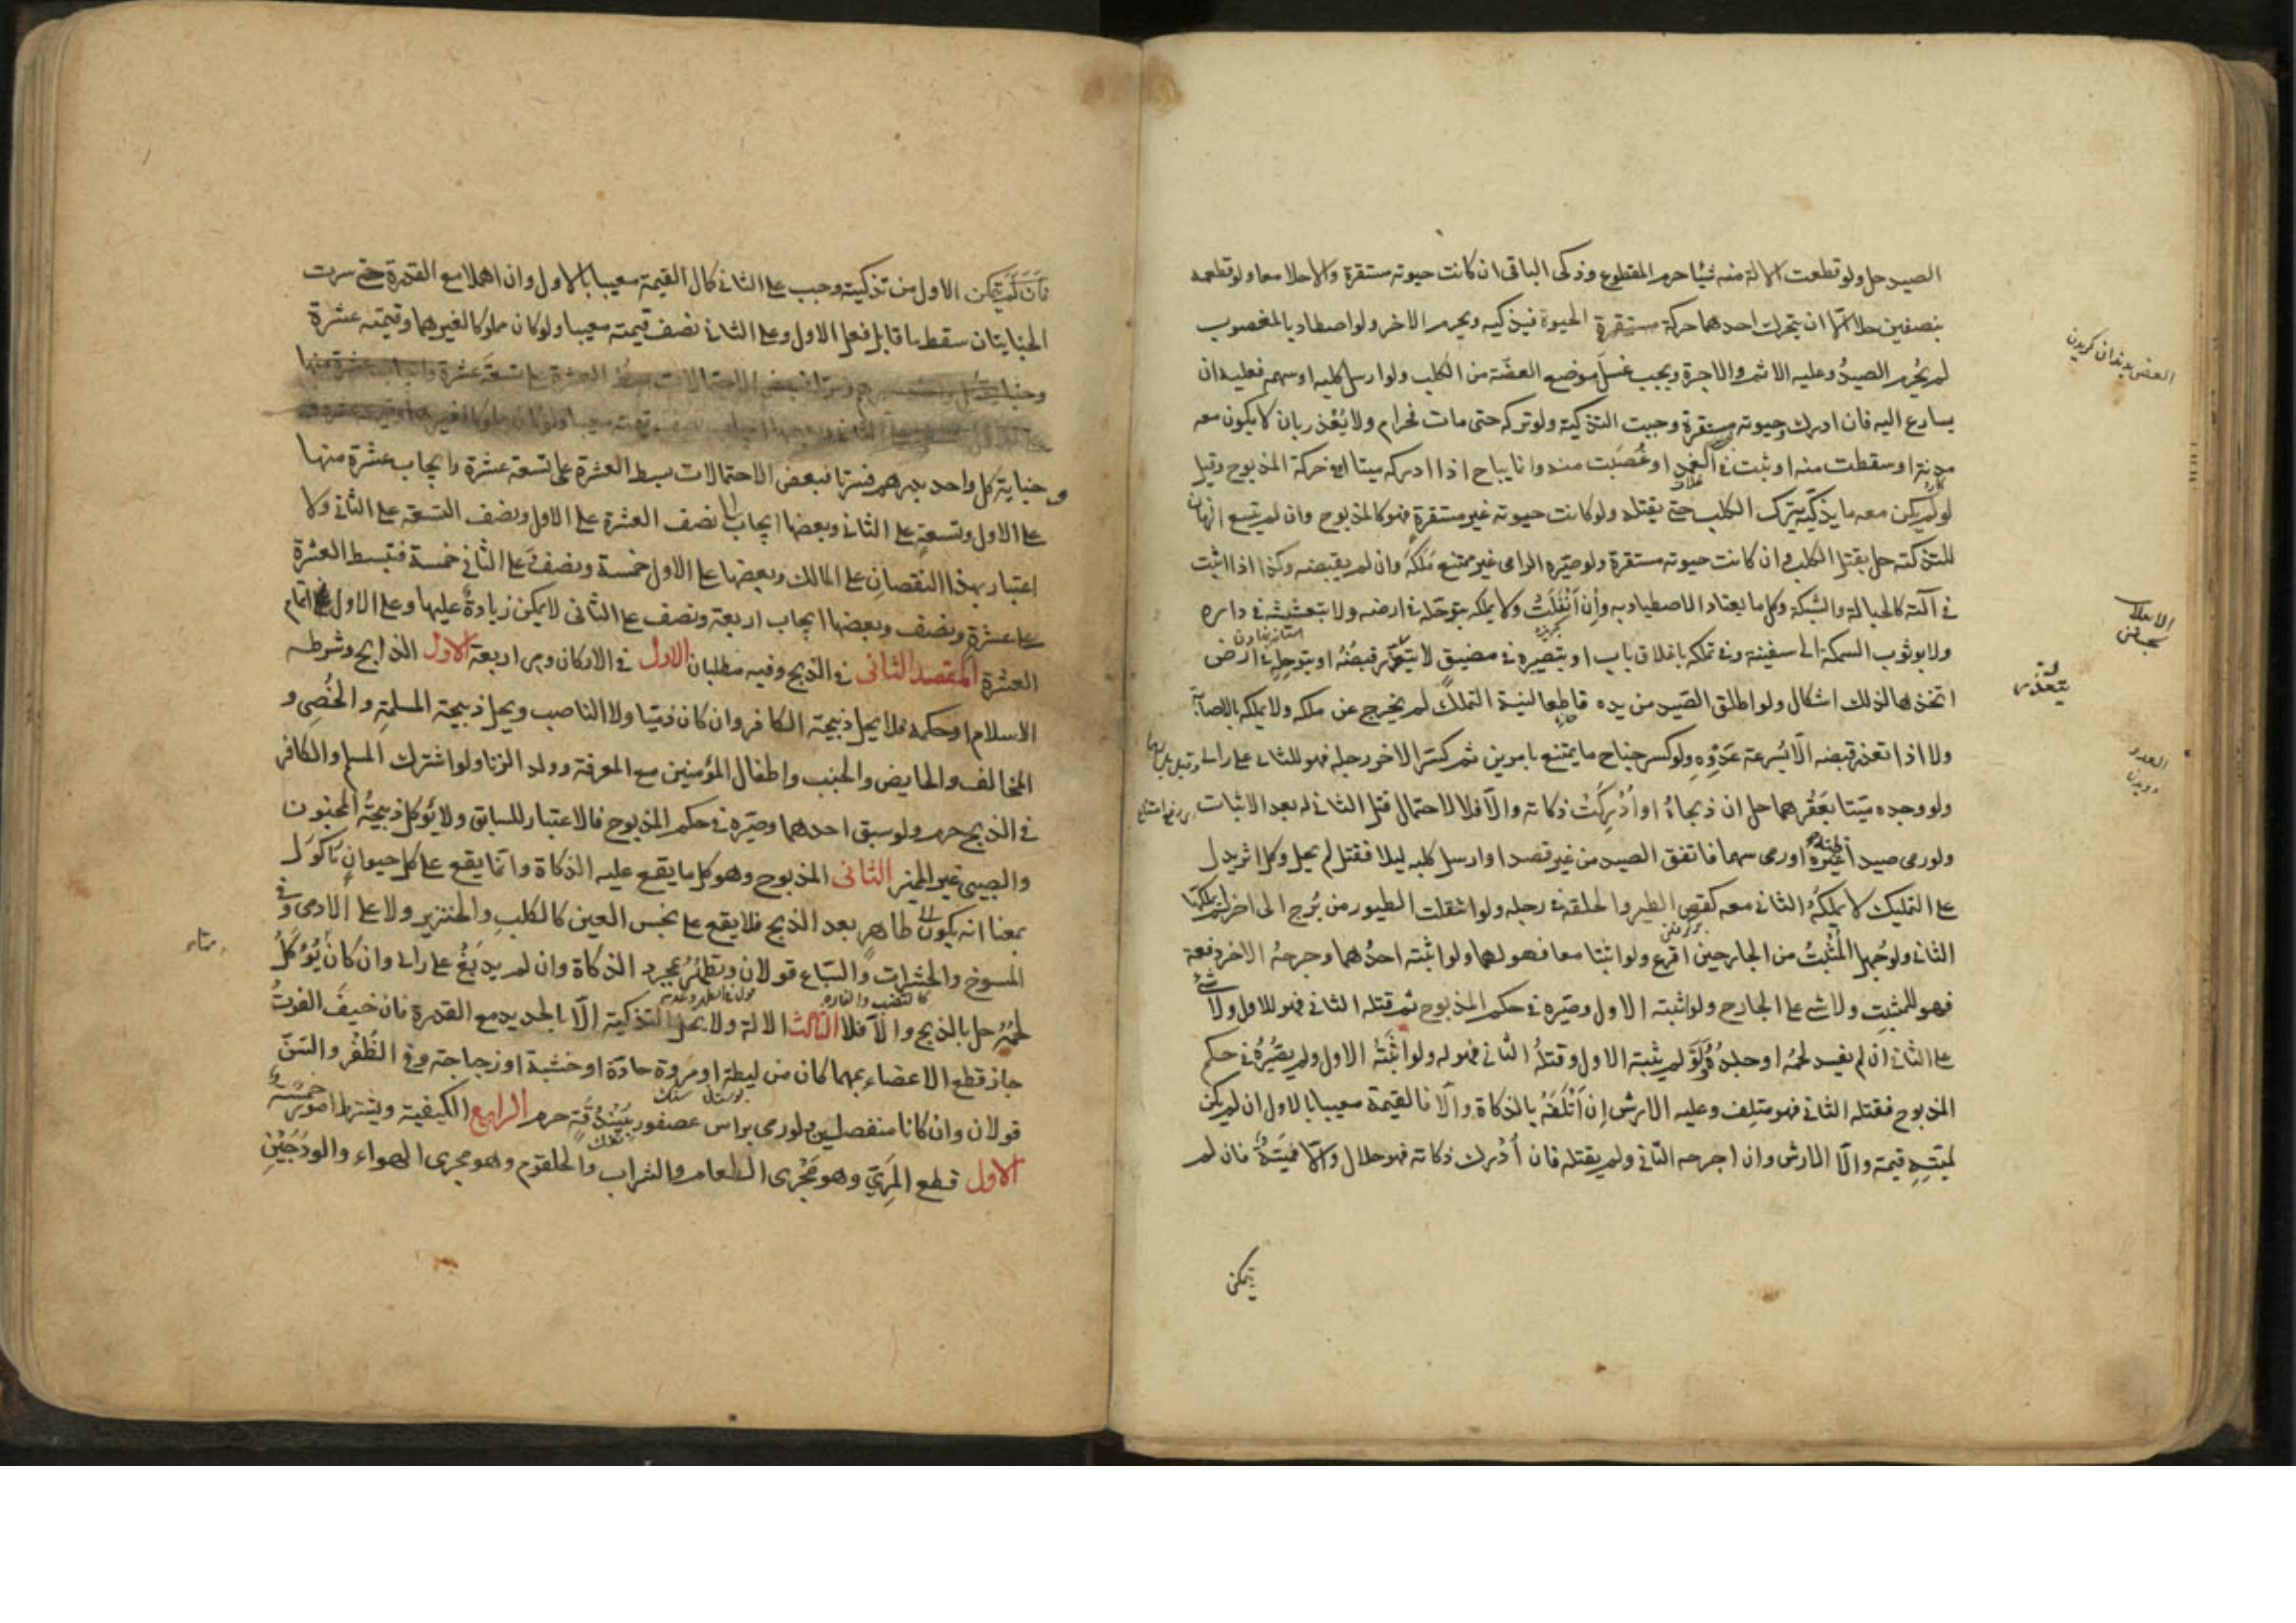 الصيد حل ولو قطعت الالة منه شيئا حرم المقطوع وذكى الباقى ان كانت حيوته مستقرة والا حلا معا ولو قطعه
بنصفين حلا الا ان يتحرك احدهما حركة مستقرة الحيوة فيذكيه ويحرم الاخر ولو اصطاد بالمغصوب
لم يُحرم الصيدُ وعليه الاثم والاجرة ويجب غسل موضع العضّة من الكلب ولو ارسل كلبه او سهمه فعليه ان
يسارع اليه فان ادرك وحيوته مستقرة وجبت التذكية ولو تركه حتى مات فحرام ولا يُعذر بان لا يكون معه
مدية او سقطت منه او ثبت فى الغمد او غُصبت منه وانما يباح اذا ادركه ميتا او فى حركة المذبوح وقيل
لو لم يكن معه ما يذكيه يترك الكلب حتى يقتله ولو كانت حيوته غير مستقرة فهو كالمذبوح وان لم يتسع الزمان
للتذكية حل بقتل الكلب وان كانت حيوته مستقرة ولو صيره الرامى غير ممتنع ملكه وان لم يقبضه وكذا اذا اثبت
فى آلته كالحبالة والشبكة وكل ما يعتاد الاصطياد به وان انفلتْ ولا يملكه بتوحله فى ارضه ولا بتعشيشه فى داره
ولا بوثوب السمكة الى سفينته وفى تملكه باغلاق باب او بتصييره فى مضيق لا يتعذر قبضُهُ او بتوحله فى ارض
اتخذها لذلك اشكال ولو اطلق الصيد من يده قاطعا لنية التملك لم يخرج عن ملكه ولا يملكه بالاصابة
ولا اذا تعذر قبضه الا بسرعة عَدْوِهِ ولو كسر جناح ما يمتنع بامرين ثم كسر الاخر رجله فهو للثانى على راى وقيل بل لهما
ولو وجده ميتا بعقرهما حل ان ذبحاهُ او أُدْرِكَتْ ذكاته والا فلا لاحتمال قتل الثانى له بعد الاثبات
ولو رمى صيدا ظنه غيره او رمى سهما فاتفق الصيد من غير قصد او ارسل كلبه ليلا فقتل لم يحل وكل اثر يدل
على التمليك لا يملكهُ الثانى معه كقص الطير والحلقة فى رجله ولو انتقلت الطيور من برج الى اخر لم يملكها
الثانى ولو جُهِل المُثْبِتُ من الجارحين اقرع ولو اثبتا معا فهو لهما ولو اثبته احدُهما وجرحهُ الاخر دفعة
فهو للمثبتِ ولا شى على الجارح ولو اثبته الاول وصيّره فى حكم المذبوح ثم قتله الثانى فهو للاول ولا شى
على الثانى ان لم يفسد لحمُه او جلدُه ولو لم يثبته الاول وقتلهُ الثانى فهو له ولو اثبَتَهُ الاول ولم يصيّرهُ فى حكم
المذبوح فقتله الثانى فهو متلِف وعليه الارش إن أتْلَفَهُ بالذكاة والا فالقيمة معيبا بالاول ان لم يكن
لميته قيمة والا الارش وان جرحه الثانى ولم يقتله فان أدْرك ذكاته فهو حلال والا فميتة فان لم
يمكن
العض بدندان كزيدن
يتعذر
العدو
دويدن
فان لم يتمكن الاول من تذكيته وجب على الثانى كمال القيمة معيبا بالاول وان اهملا مع القدرة حتى سرت
الجنايتان سقط ما قابل فعل الاول وعلى الثانى نصف قيمته معيبا ولو كان مملوكا لغيرهما وقيمته عشرة
وجناية كل واحد بدرهم فسرتا فبعض الاحتمالات بسط العشرة على تسعة عشرة وايجاب عشرة منها
على الاول وتسعةٍ على الثانى وبعضها ايجاب نصف العشرة على الاول ونصف التسعة على الثانى ولا
اعتبار بهذا النقصان على المالك وبعضها على الاول خمسة ونصف على الثانى خمسة فتبسط العشرة
على عشرة ونصف وبعضها ايجاب اربعة ونصف على الثانى لا يمكن زيادةٌ عليها وعلى الاول اتمام
العشرة المقصد الثانى فى الذبح وفيه مطلبان الاول فى الاركان وهى اربعة الاول الذابح وشرطه
الاسلام او حكمه فلا يحل ذبيحة الكافر وان كان ذميّا ولا الناصب ويحل ذبيحة المسلمة والخصِى و
المخالف والحايض والجنب واطفال المؤمنين مع المعرفة وولد الزنا ولو اشترك المسلم والكافر
فى الذبح حرم ولو سبق احدهما وصيّره فى حكم المذبوح فالاعتبار للسابق ولا يؤكل ذبيحةُ المجنون
والصبى غير المميز الثانى المذبوح وهو كل ما يقع عليه الذكاة وانما يقع على كل حيوانٍ مأكول
بمعنا انه يكون طاهر بعد الذبح فلا يقع على نجس العين كالكلبِ والخنزير ولا على الادمى وفى
المسوخ والحشرات والسباع قولان ويطهُرُ بمجرد الذكاة وان لم يدبَغْ على راى وان كان يُؤكلُ
لحمُه حل بالذبح والا فلا الثالث الالة ولا يحل التذكية الا بالحديد مع القدرة فان خيفَ الفوتُ
جاز قطع الاعضاء بمهما كان من ليطة او مروة حادّة او خشبة او زجاجة وفى الظُفْر والسّنّ
قولان وان كانا منفصلين ولو رمى براس عصفور ببندُقَةٍ حرم الرابع الكيفية ويشترط امور خمسة
الاول قطع المَرِىّ وهو مَجْرى الطعام والشراب والحلقوم وهو مجرى الهواء والودَجَيْنِ